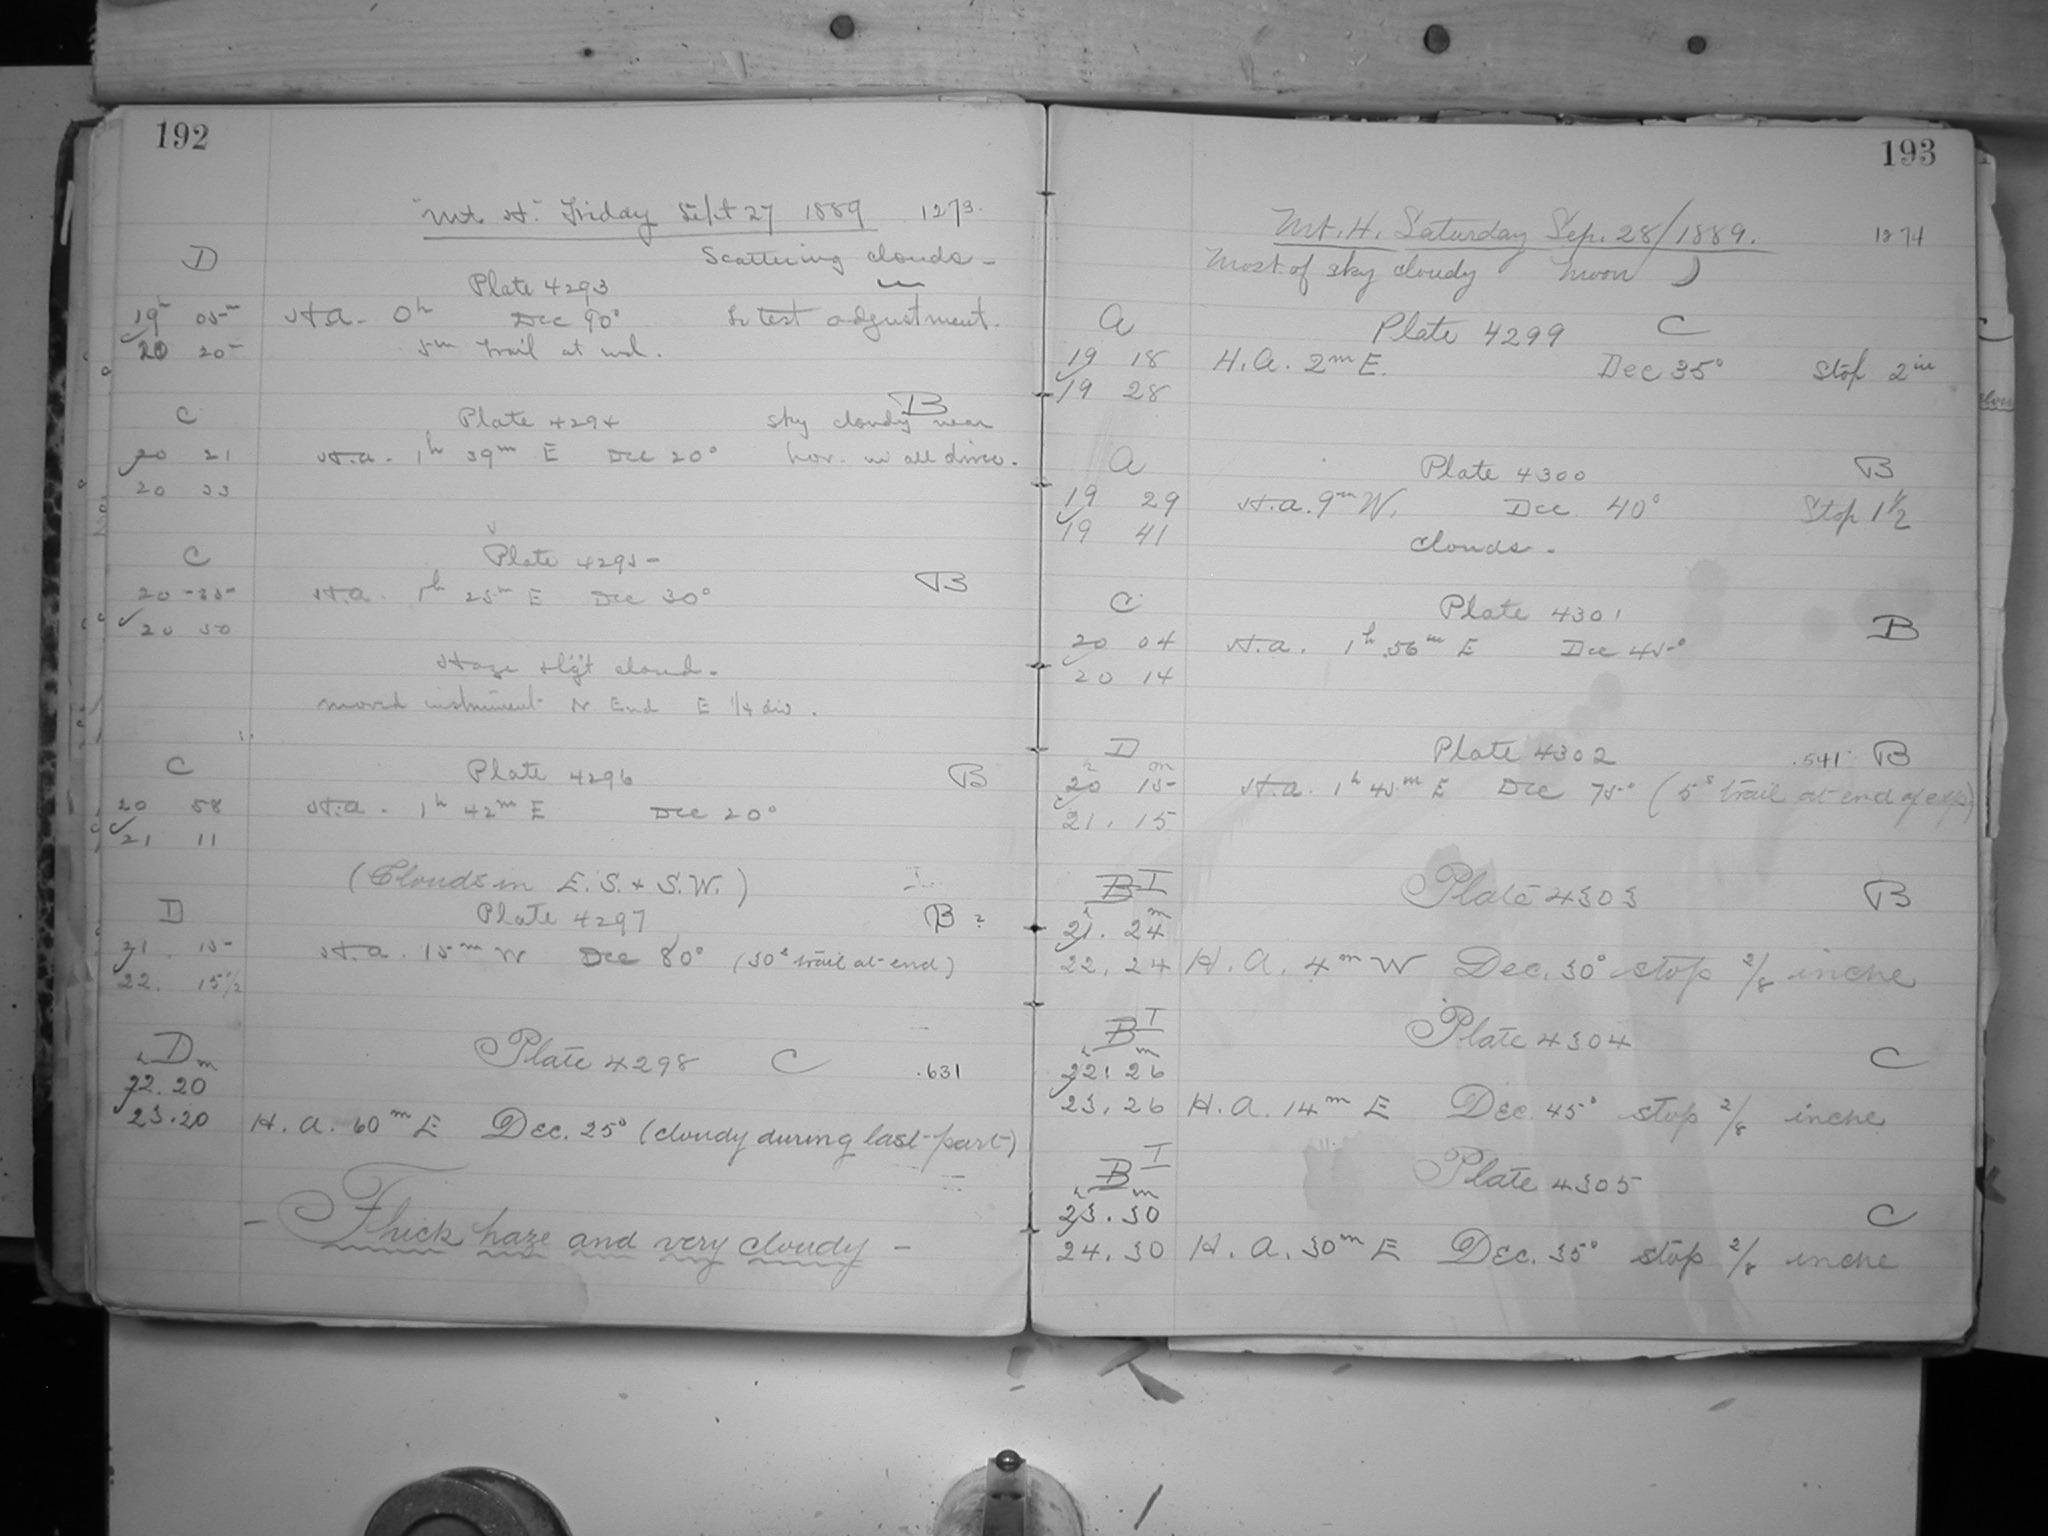 192
"Mt. H." Friday Sept 27 1889 1273.
D Scattering clouds -
Plate 4293
19h 05m H.A. 0h Dec 90° to test adjustment.
20 20 5m trail at end.
B
C Plate 4294 sky cloudy near
20 21 H.A. 1h 39m E Dec 20° hor. in all direc.
20 33
C Plate 4295
20 35 H.A. 1h 25m E Dec 30° B
20 50
Haze slgt cloud.
moved instrument N End E 1/4 div.
C Plate 4296 B
20 58 H.A. 1h 42m E Dec 20°
21 11
(Clouds in E. S. + S.W.)
D Plate 4297 B ?
21. 15 H.A. 15m W Dec 80° (30s trail at end)
22. 15 1/2
D Plate 4298 C .631
h m
22.20
23.20 H.A. 60m E Dec. 25° (cloudy during last part)
- Thick haze and very cloudy -
193
Mt. H. Saturday Sep. 28/1889. 1274
Most of sky cloudy moon )
A Plate 4299 C
19 18 H.A. 2m E. Dec 35° Stop 2 in
19 28
A Plate 4300 B
19 29 H.A. 9m W. Dec. 40° Stop 1 1/2
19 41 clouds.
C Plate 4301 B
20 04 H.A. 1h 56m E Dec 45°
20 14
D Plate 4302 .541 B
h m
20 15 H.A. 1h 45m E Dec 75° (5s trail at end of exp)
21. 15
B I Plate 4303 B
h m
21. 24
22. 24 H.A. 4m W Dec. 30° stop 2/8 inche
B I Plate 4304 C
h m
22. 26
23. 26 H.A. 14m E Dec. 45° stop 2/8 inche
B I Plate 4305 C
h m
23.30
24.30 H.A. 30m E Dec. 35° stop 2/8 inche